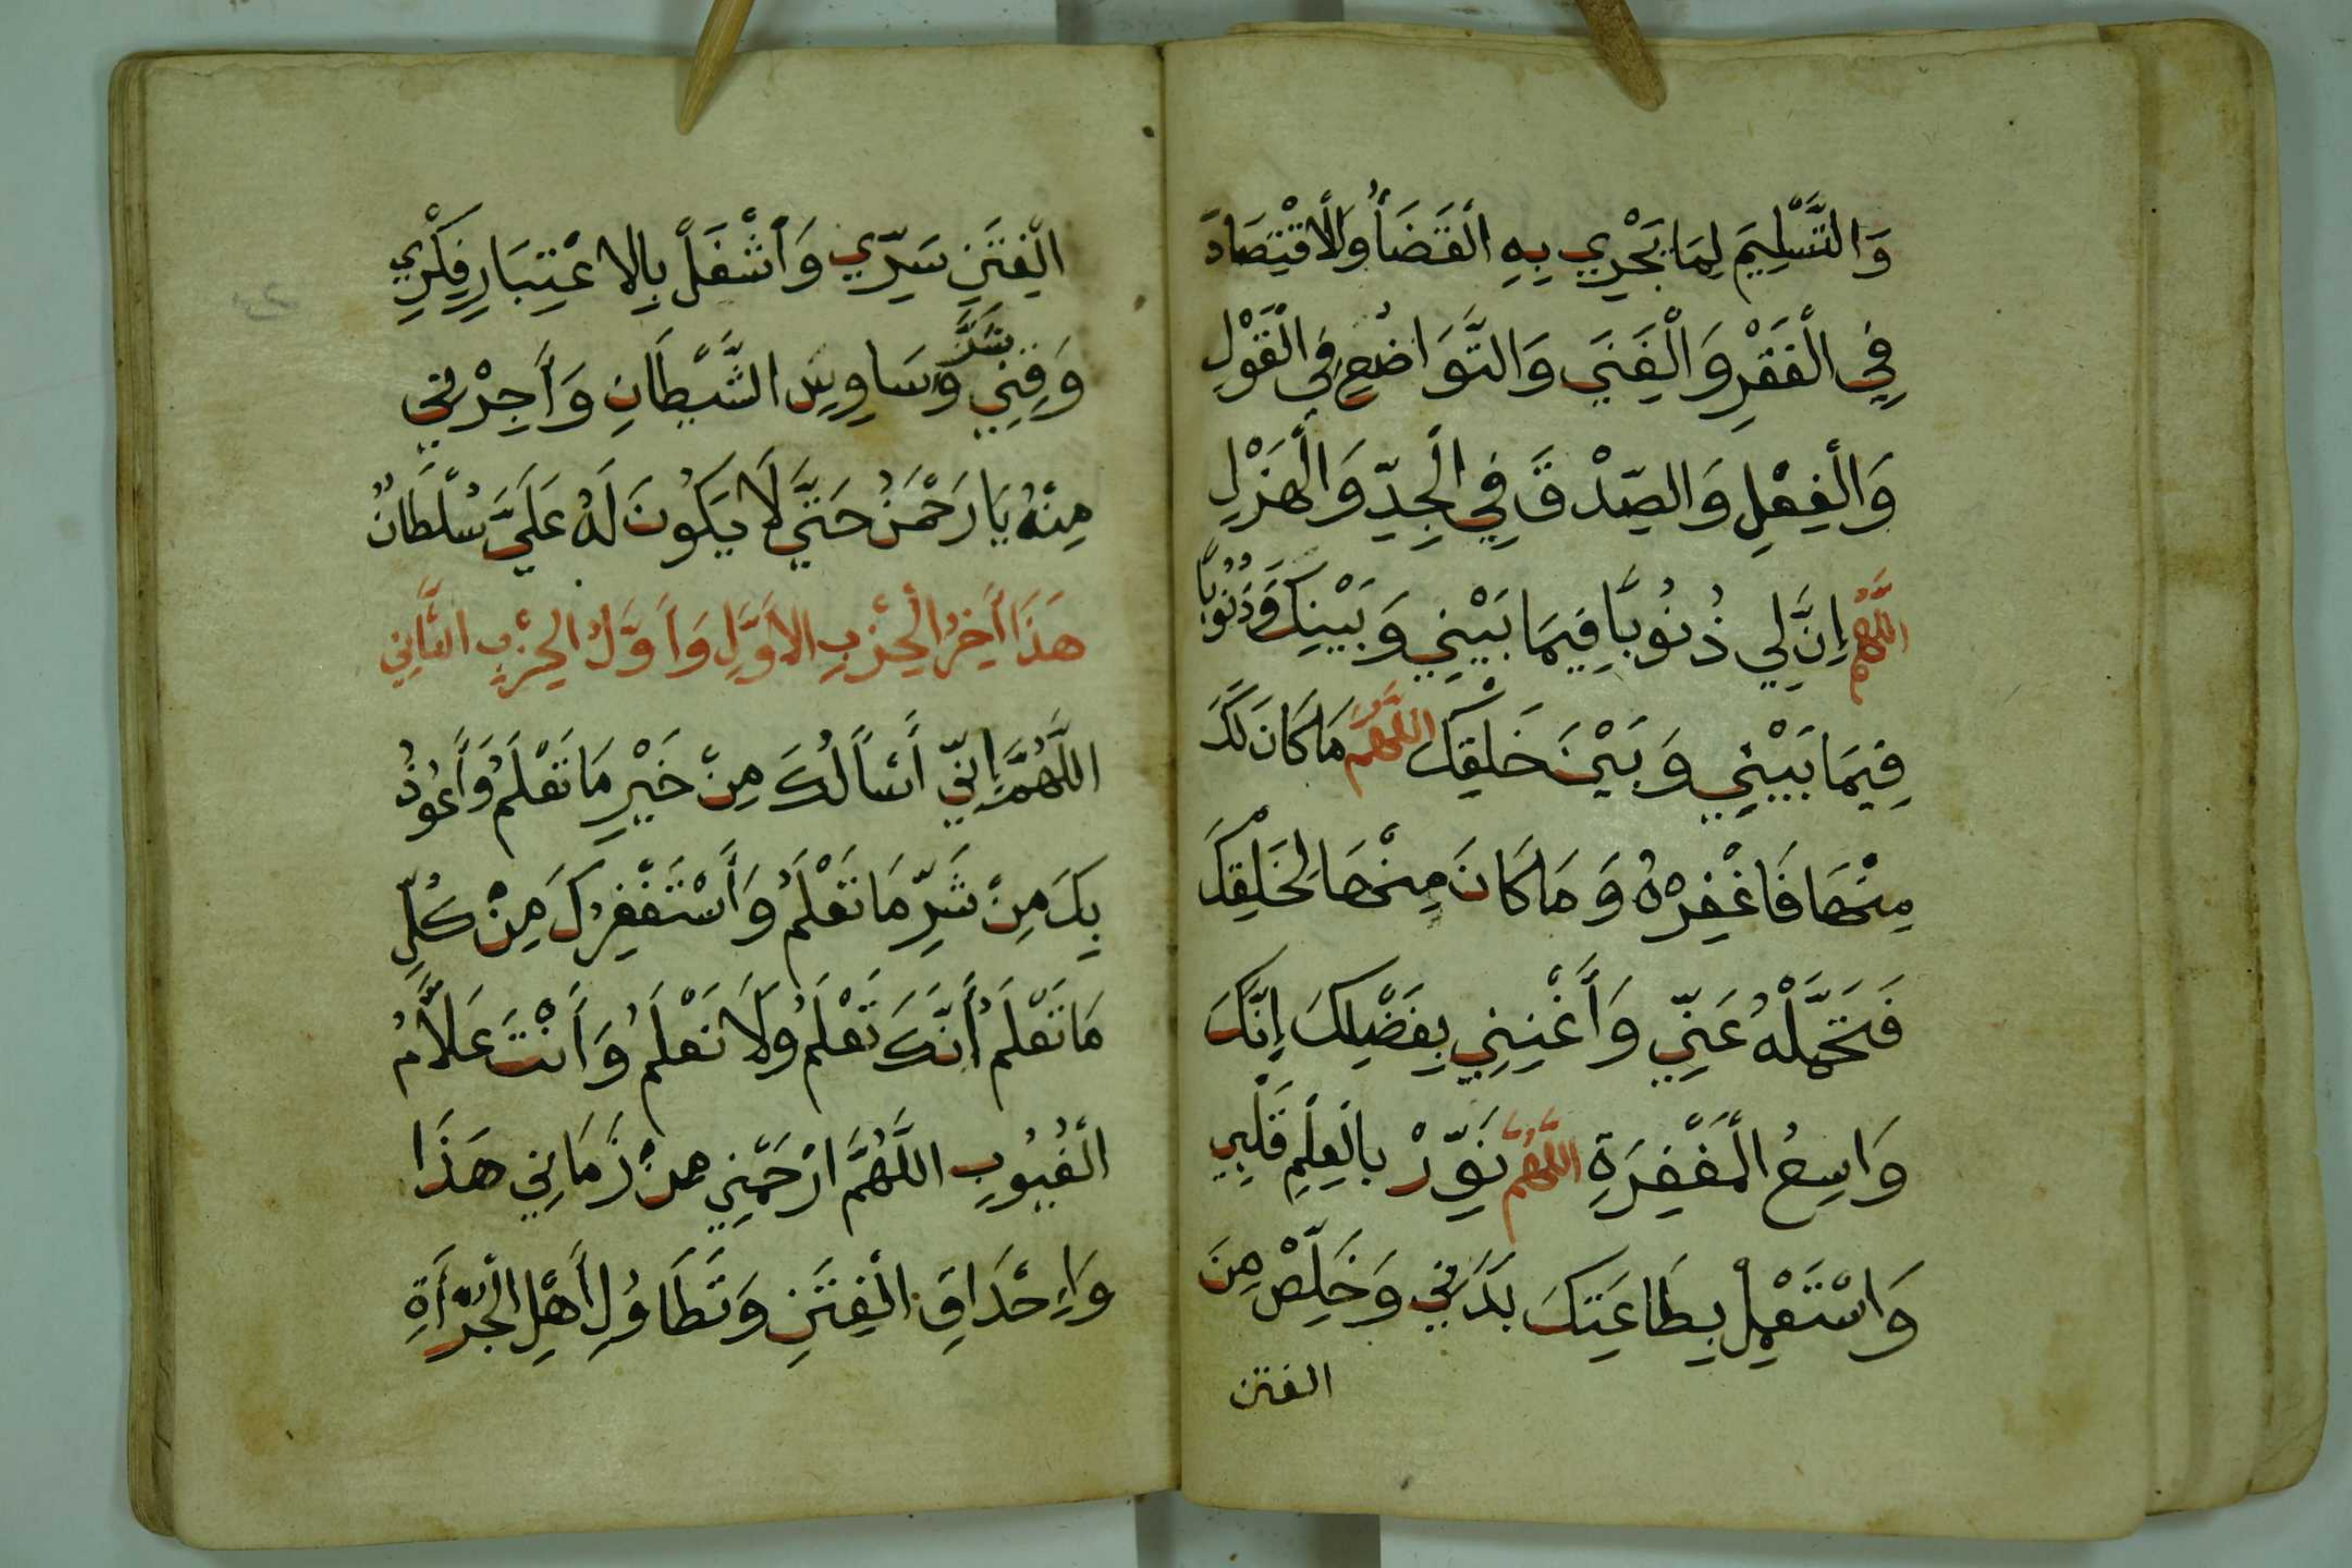 وَالتَّسْلِيمَ لِمَا يَجْرِي بِهِ الْقَضَاءُ وَالْاقْتِصَادَ
فِي الْفَقْرِ وَالْغِنَى وَالتَّوَاضُعَ فِي الْقَوْلِ
وَالْفِعْلِ وَالصِّدْقَ فِي الْجِدِّ وَالْهَزْلِ
اللَّهُمَّ إِنَّ لِي ذُنُوبًا فِيمَا بَيْنِي وَبَيْنِكَ وَذُنُوبًا
فِيمَا بَيْنِي وَبَيْنَ خَلْقِكَ اللَّهُمَّ مَا كَانَ لَكَ
مِنْهَا فَاغْفِرْهُ وَمَا كَانَ مِنْهَا لِخَلْقِكَ
فَتَحَمَّلْهُ عَنِّي وَأَغْنِنِي بِفَضْلِكَ إِنَّكَ
وَاسِعُ الْمَغْفِرَةِ اللَّهُمَّ نَوِّرْ بِالْعِلْمِ قَلْبِي
وَاسْتَعْمِلْ بِطَاعَتِكَ بَدَنِي وَخَلِّصْ مِنَ
الفتن
الْفِتَنِ سِرِّي وَأَشْغَلْ بِالاعْتِبَارِ فِكْرِي
وَقِنِي شَرَّ وَسَاوِسِ الشَّيْطَانِ وَأَجِرْنِي
مِنْهُ يَا رَحْمَنُ حَتَّى لَا يَكُونَ لَهُ عَلَيَّ سُلْطَانٌ
هَذَا أَخِرُ الْحِزْبِ الاَوَّلِ وَأَوَّلُ الْحِزْبِ الثَّانِي
اللَّهُمَّ إِنِّي أَسْأَلُكَ مِنْ خَيْرِ مَا تَعْلَمُ وَأَعُوذُ
بِكَ مِنْ شَرِّ مَا تَعْلَمُ وَأَسْتَغْفِرُكَ مِنْ كُلِّ
مَا تَعْلَمُ أَنَّكَ تَعْلَمُ وَلَا نَعْلَمُ وَأَنْتَ عَلَّامُ
الْغُيُوبِ اللَّهُمَّ ارْحَمْنِي مِنْ زَمَانِي هَذَا
وَاِحْدَاقِ الْفِتَنِ وَتَطَاوُلِ أَهْلِ الْجُرْأَةِ